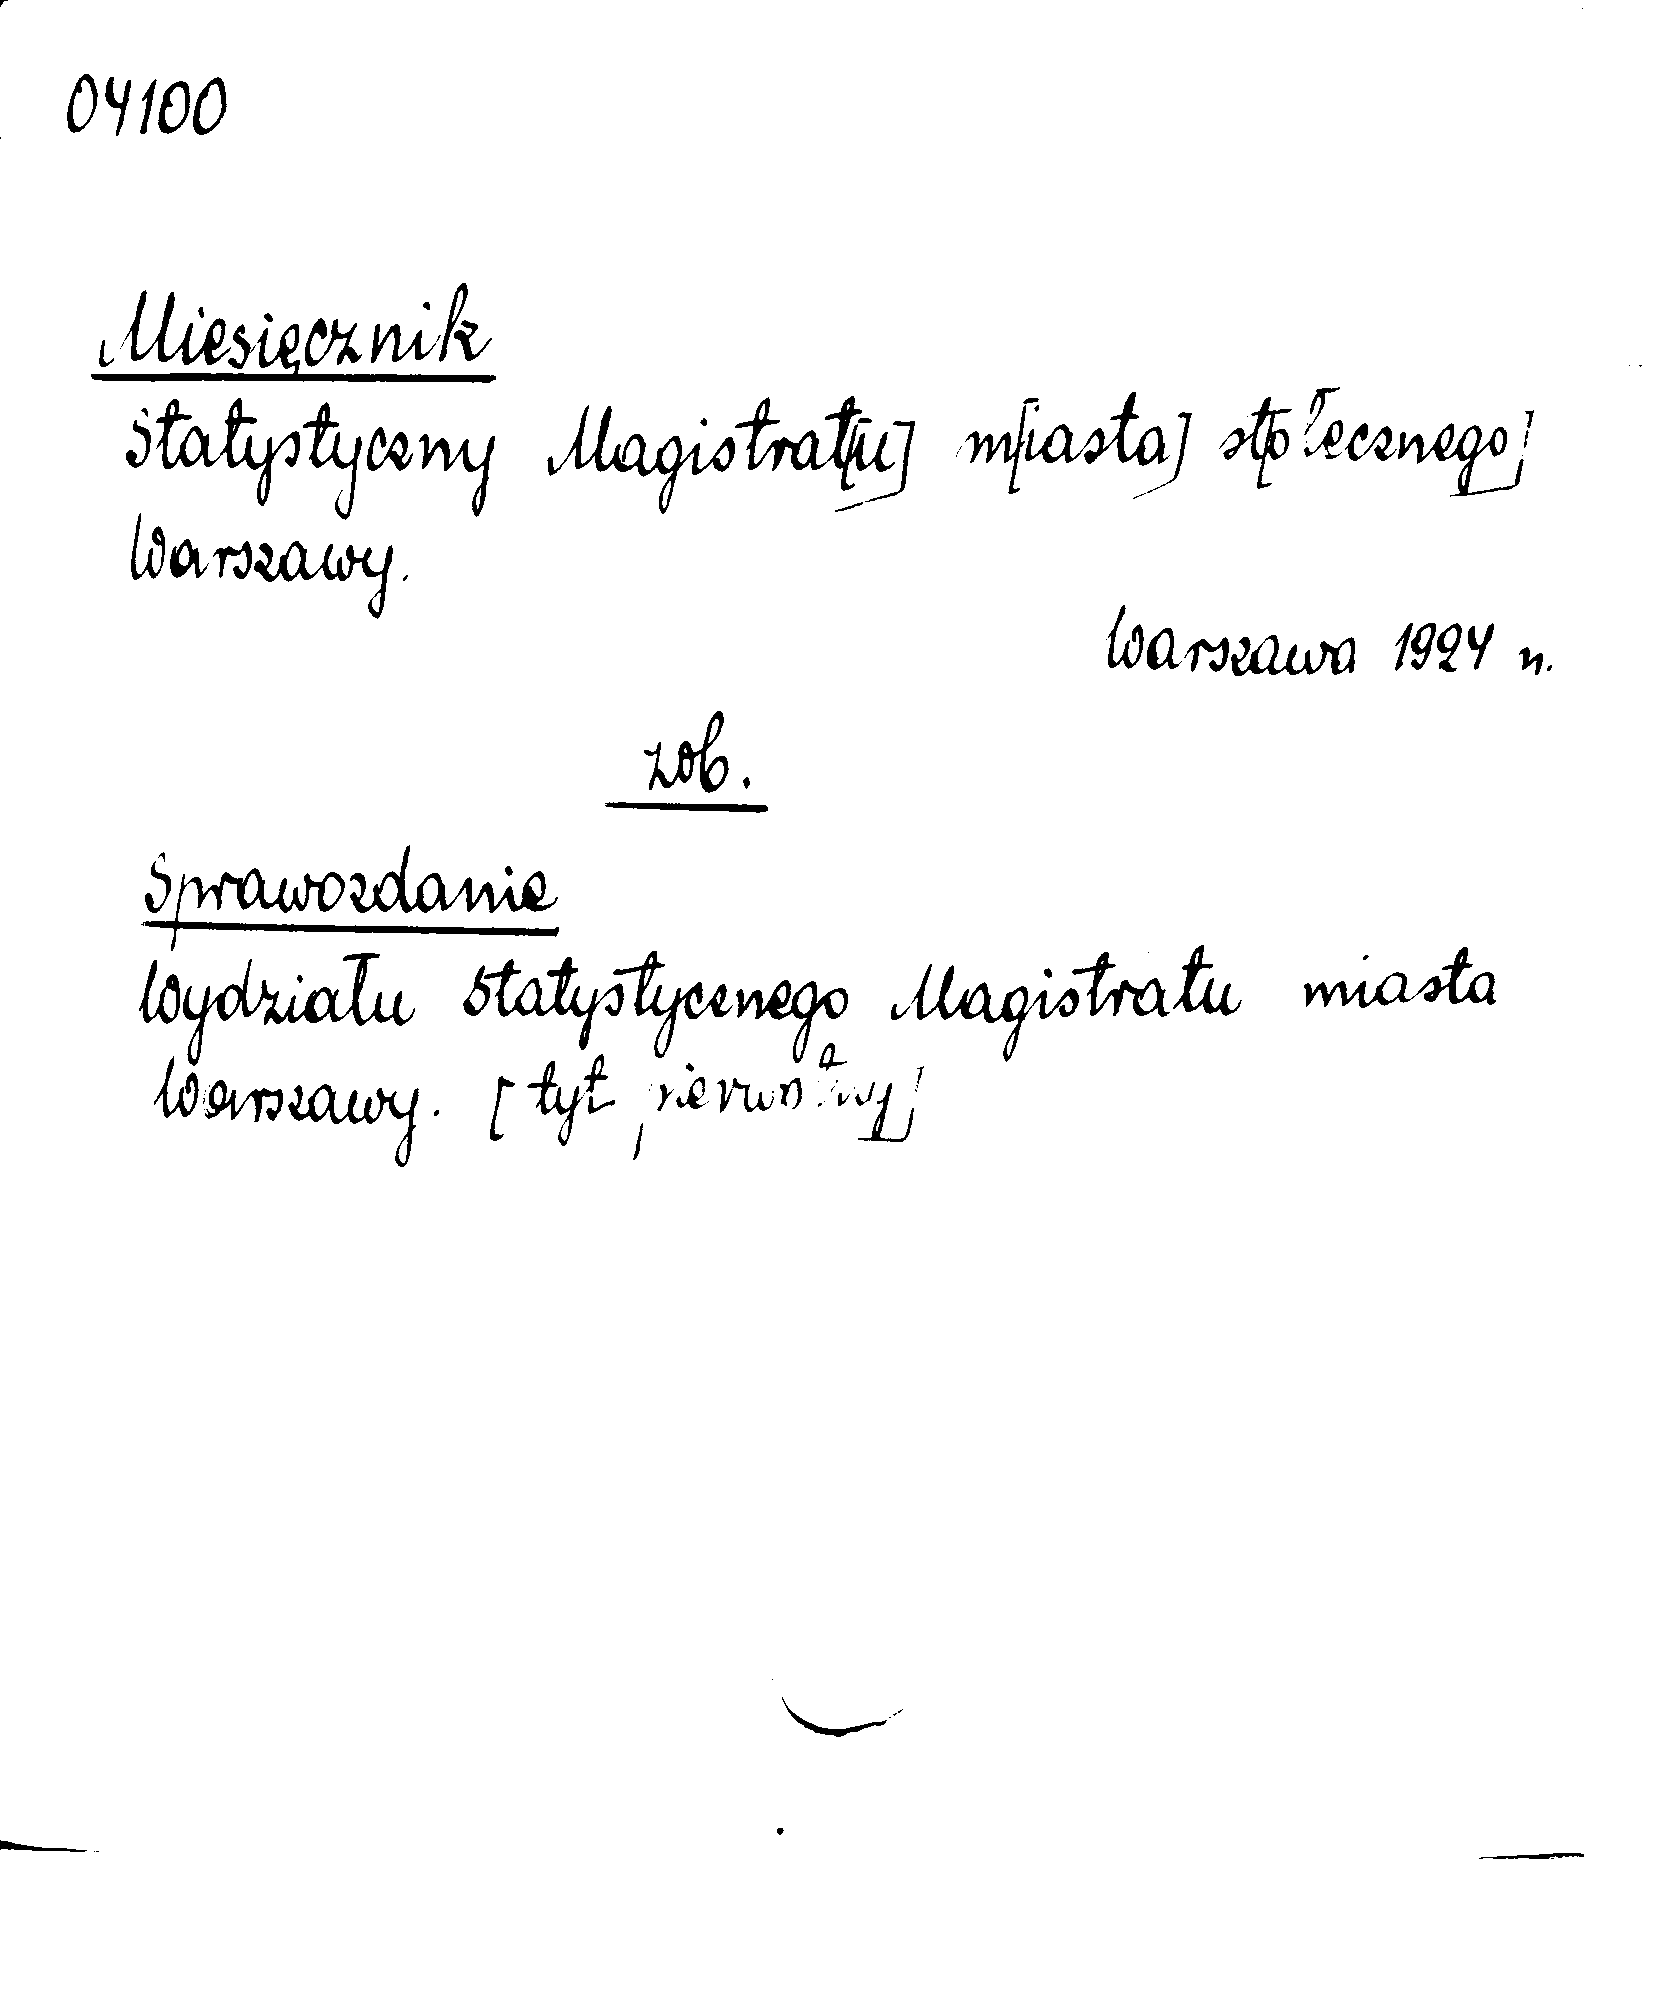 04100
Miesięcznik
Statystyczny Magistrat[u] m[iasta] st[ołecznego]
Warszawy.
Warszawa 1924 n.
zob.
Sprawozdanie
Wydziału Statystycznego Magistratu miasta
Warszawy. [tyt pierwotny]